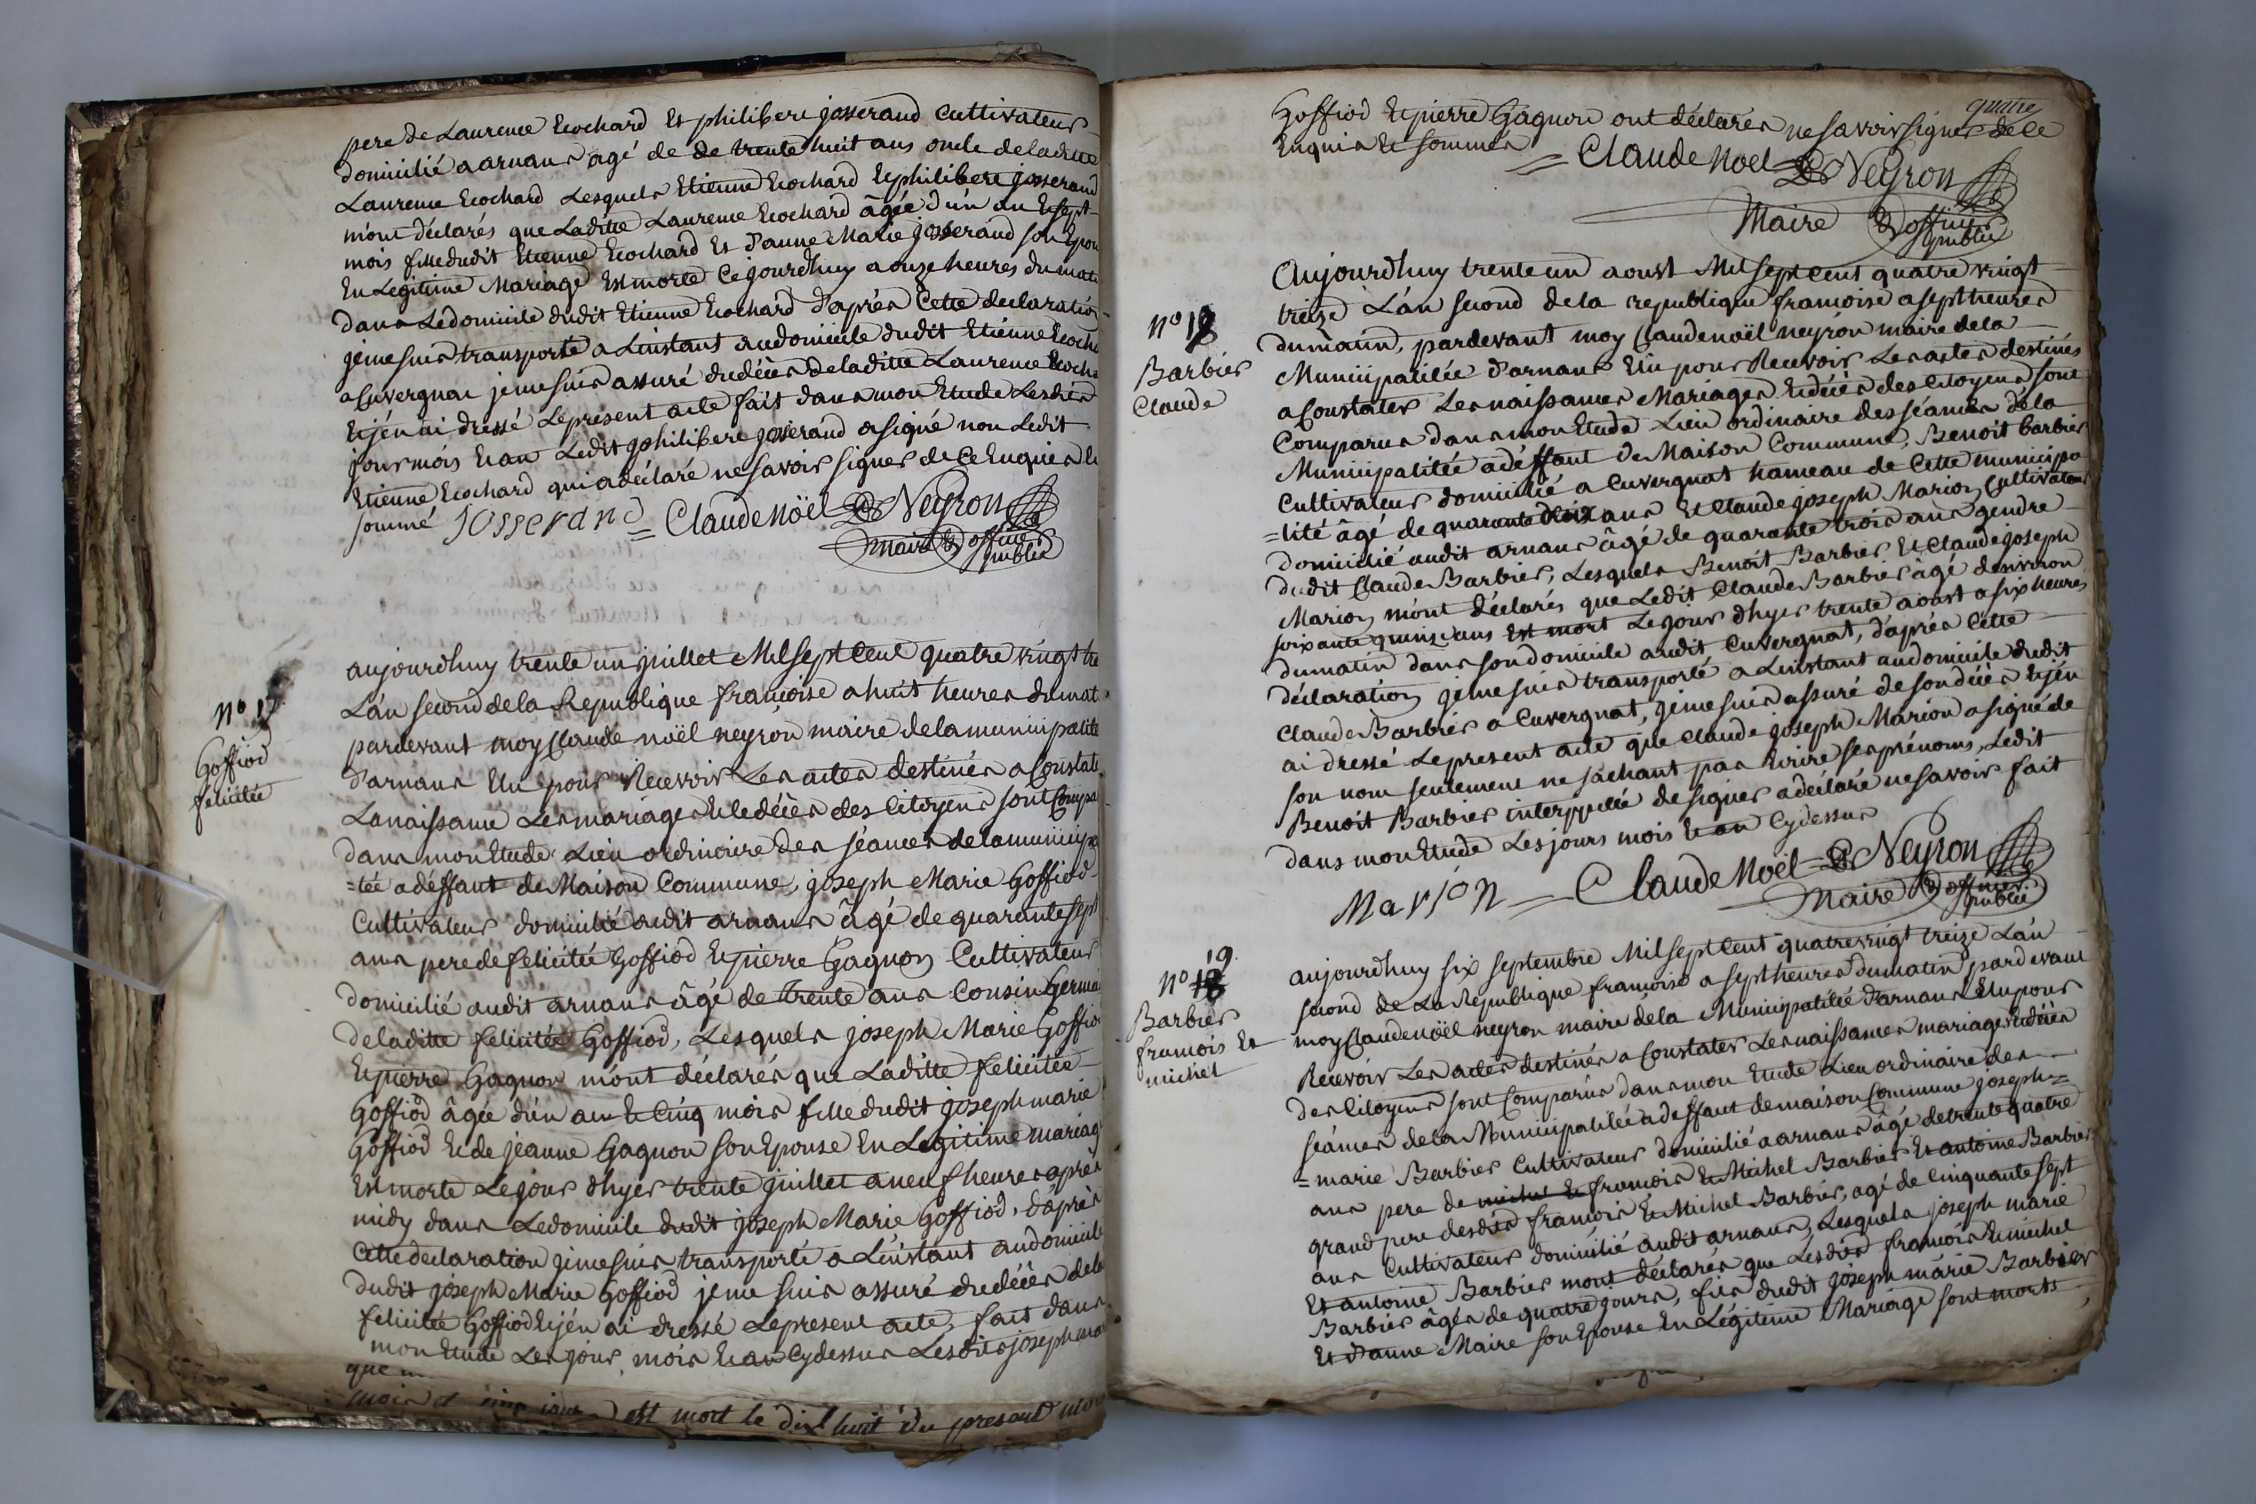 pere de Laurence Ecochard Et philibere josserand Cultivateur
domicilié a arnans agé de de trente huit ans oncle de laditte
Laurence Ecochard Lesquels Etienne Ecochard Et philibere josserand
m'ont déclarés que Laditte Laurence Ecochard âgée d'un an Et sept
mois fille dudit Etienne Ecochard Et d'anne Marie josserand son Epou
En Legitime Mariage Est morte Ce jourdhuy a onze heures du mati
dans Le domicile dudit Etienne Ecochard d'après Cette declaration
je me suis transporté a Linstant au domicile dudit Etienne Ecocha
a Cuvergnat je me suis assuré du décès de laditte Laurence Ecocha
Et j'en ai dressé Le present acte fait dans mon Etude Lesdits
jour mois Et an Ledit philibere josserand a signé non Ledit
Etienne Ecochard qui a déclaré ne savoir signer de Ce Enquis Et
sommé josserand = Claude Noël Neyron
Maire & officier
public
N° 17
Goffiod
felicitée
aujourdhuy trente un juillet Mil sept Cent quatre vingt tre
L'an second de la Republique françoise a huit heures du mat
pardevant moy Claude noël neyron maire de la municipalité
d'arnans Elu pour Recevoir Les actes destinés a Constate
La naissance Les mariages Et le décès des Citoyens sont Compa
dans mon Etude Lieu ordinaire des séances de la municipa
=tée a déffaut de Maison Commune, joseph Marie Goffiod
Cultivateur domicilié audit arnans âgé de quarante sept
ans pere de felicitée Goffiod Et pierre Gagnon Cultivateur
domicilié audit arnans âgé de trente ans Cousin Germai
de laditte felicitée Goffiod, Lesquels joseph Marie Goffiod
Et pierre Gagnon m'ont déclarés que Laditte felicitée
Goffiod âgée d'un an Et Cinq mois fille dudit joseph marie
Goffiod Et de jeanne Gagnon son Epouse En Legitime mariag
Est morte Le jour d'hyer trente juillet a neuf heures après
midy dans Le domicile dudit joseph Marie Goffiod, d'après
Cette declaration je me suis transporté a L'instant au domicile
dudit joseph Marie Goffiod je me suis assuré du décès de la
felicitée Goffiod Et j'en ai dressé Le present acte, fait dans
mon Etude Les jour, mois Et an Cydessus Lesdits joseph ma
que
mois et cinq jours est mort le dix huit du present mois
quatre
Goffiod Et pierre Gagnon ont déclarés ne savoir signer de Ce
Enquis Et sommés = Claude Noël Neyron
Maire & officier
public
N° 18
Barbier
Claude
Aujourdhuy trente un aoust Mil sept Cent quatre vingt
treize L'an second de la republique françoise a sept heures
du matin, pardevant moy Claude noël neyron maire de la
Municipalitée d'arnans Elu pour Recevoir Les actes destinés
a Constater Les naissances Mariages Et décès des Citoyens sont
Comparus dans mon Etude Lieu ordinaire des séances de la
Municipalitée a déffaut de Maison Commune, Benoit barbier
Cultivateur domicilié a Cuvergnat hameau de Cette municipa
=lité âgé de quarante deux ans Et Claude joseph Marion Cultivateur
domicilié audit arnans âgé de quarante trois ans gendre
dudit Claude Barbier, Lesquels Benoît Barbier Et Claude joseph
Marion m'ont déclarés que Ledit Claude Barbier âgé d'environ
soixante quinze ans Est mort Le jour d'hyer trente aoust a six heures
du matin dans son domicile audit Cuvergnat, d'après Cette
déclaration je me suis transporté a L'instant au domicile dudit
Claude Barbier a Cuvergnat, je me suis assuré de son décès Et j'en
ai dressé Le present acte que Claude joseph Marion a signé de
son nom seulement ne sachant pas Ecrire ses prénoms, Ledit
Benoit Barbier interpellé de signer a déclaré ne savoir fait
dans mon Etude Les jours mois Et an Cydessus
Marion = Claude Noël Neyron
Maire & officier
public
N° 19
18
Barbier
françois Et
michel
aujourdhuy six septembre Mil sept Cent quatre vingt treize L'an
second de La Republique françoise a sept heures du matin pardevant
moy Claude noël neyron maire de la Municipalitée d'arnans Elu pour
Recevoir Les actes destinés a Constater Les naissances mariages Et décès
des Citoyens sont Comparus dans mon Etude Lieu ordinaire des
séances de la Municipalitée a deffaut de maison Commune joseph=
=marie Barbier Cultivateur domicilié a arnans âgé de trente quatre
ans pere de michel Et françois Et Michel Barbier Et antoine Barbier
grand pere desdits françois Et Michel Barbier, agé de Cinquante sept
ans Cultivateur domicilié audit arnans, Lesquels joseph marie
Et antoine Barbier mont déclarés que Lesdits françois Et michel
Barbier âgés de quatre jours, fils dudit joseph marie Barbier
Et d'anne Maire son Epouse En Légitime Mariage sont morts